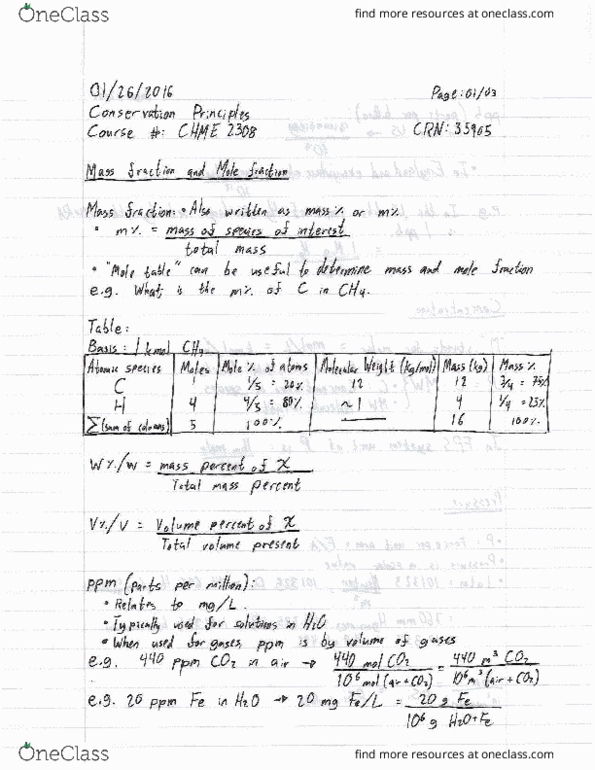 OneClass
find more resources at oneclass.com
01/26/2016 Page: 01/03
Conservation Principles
Course #: CHME 2308 CRN: 35905
Mass fraction and Mole fraction
Mass fraction: • Also written as mass % or m%
• m% = mass of species of interest
total mass
• "Mole table" can be useful to determine mass and mole fraction
e.g. What is the m% of C in CH4.
Table:
Basis: 1 kmol CH4
Atomic species Moles Mole % of atoms Molecular Weight (kg/mol) Mass (kg) Mass %
C 1 1/5 = 20% 12 12 3/4 = 75%
H 4 4/5 = 80% ~1 4 1/4 = 25%
∑ (sum of columns) 5 100% 16 100%
W%/W = mass percent of X
Total mass percent
V%/V = Volume percent of X
Total volume present
ppm (parts per million):
• Relates to mg/L.
• Typically used for solutions in H2O
• When used for gases, ppm is by volume of gases
e.g. 440 ppm CO2 in air → 440 mol CO2 = 440 m³ CO2
10⁶ mol (air + CO2) 10⁶ m³ (air + CO2)
e.g. 20 ppm Fe in H2O → 20 mg Fe/L = 20 g Fe
10⁶ g H2O+Fe
OneClass
find more resources at oneclass.com